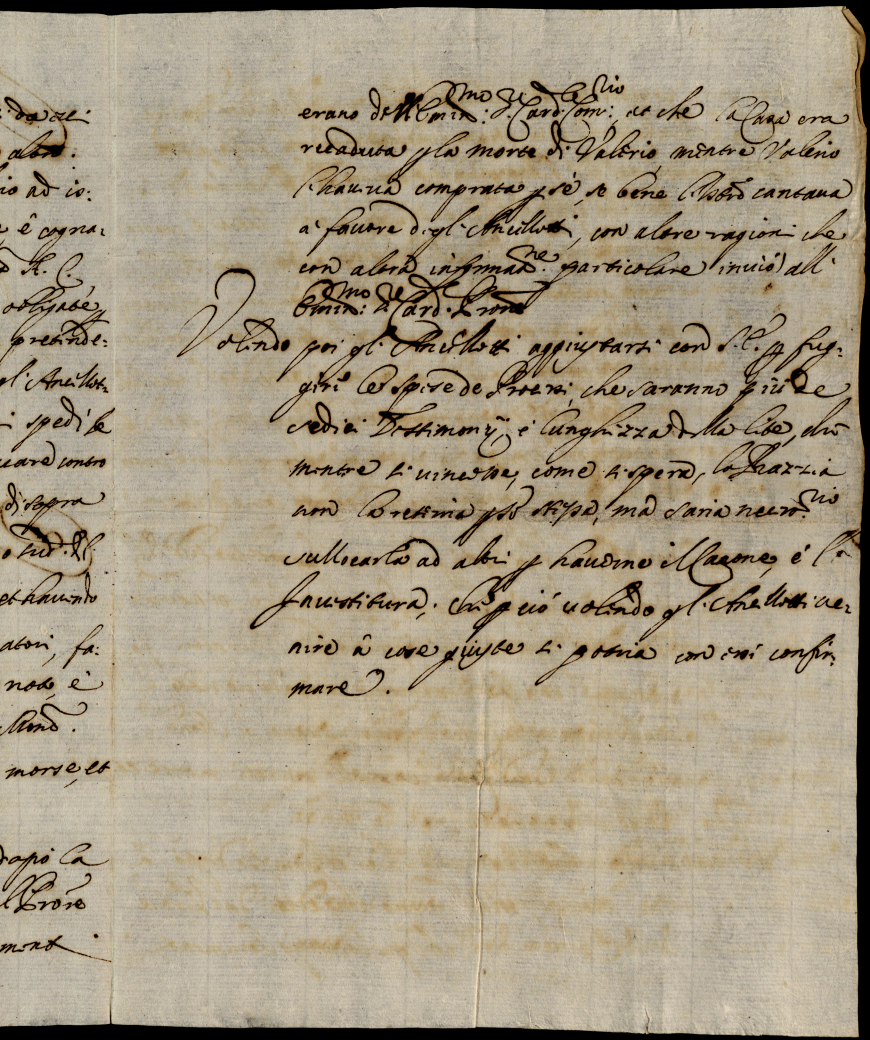 di da ae:
altro.
io ad is:
e ê cogna:
H. C.
obligate
pretende:
gl'Ancillot:
i spedì le
care contro
di sopra
et havendo
atori, fa:
note, è
morse, et
dapò la
ment
erano dell'Emin:mo Sr. Card: Com:rio, et che la Casa era
recaduta p la morte di Valerio, mentre Valerio
l'hauea comprata p sé, se bene l'Istro cantaua
a fauore degl'Ancillotti, con altre ragioni che
con altra informatne. particolare inuiò all'
Emin:mo Sr. Card. Prone
Volendo poi gl'Ancillotti aggiustarsi con S. E. p fug:
gire le spese de Processi, che saranno più de
sedici Testimonij, e lunghezza della lite, che
mentre si uincesse, come si spera, la Piazzia
non la retenia p se stessa, mà saria necro.rio
sullocarla ad altri p hauerne il Canone, è l'
Inuestitura, che p ciò uolendo gl'Ancillotti ue:
nire â cose giuste si potria con essi confir:
mare.